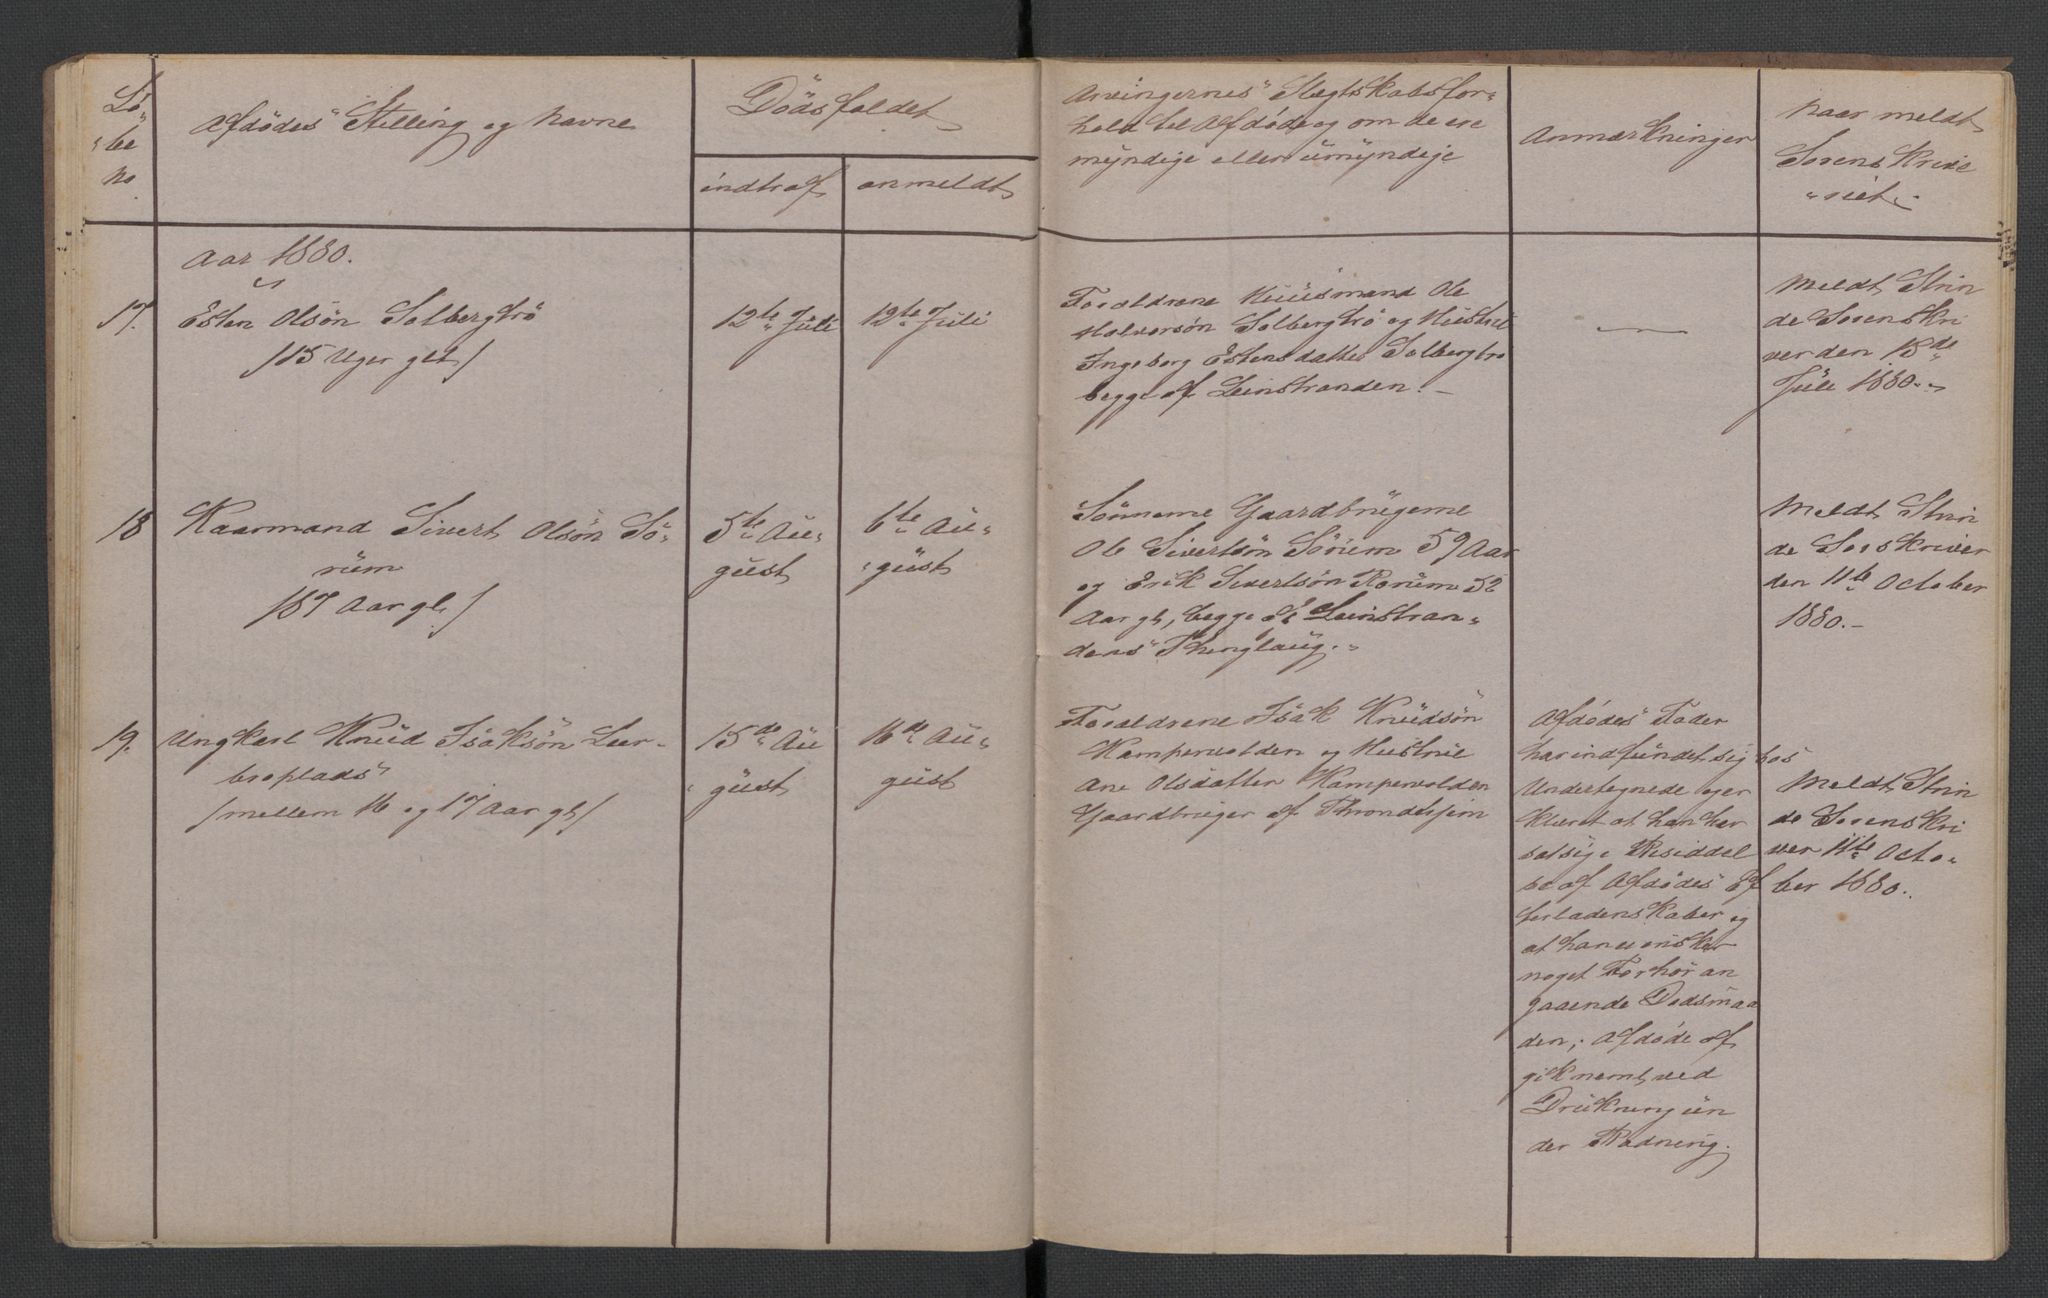 Lö-
be
no.
Afdödes" Stilling og navne
Dödsfaldet
indtraf
anmeldt
Arvingernes" Slegtskabsfor-
hold til Afdöde og om de ere
myndige eller umyndige
Anmærkninger
naar meldt
Sorenskrive
"riet".
Aar 1880.
17.
Esten Olsön Solbergtrö
/15 Uger glt/
12te Juli
12te Juli
Foraldrene Huusmand Ole
Halvorsön Solbergtrö og Hustru
Ingeborg Estensdatter Solbergtrö
begge af Leinstranden. -
—
Meldt Strin
de Sorenskri
ver den 13de
Juli 1880.-
18
Kaarmand Sivert Olsön Sö-
rum
/87 Aar gl./
5te Au-
gust
6te Au-
gust
Sönnerne Gaardbrugerne
Ole Sivertsön Sörum 59 Aar
og Erik Sivertsön Rorum 52
Aar gl, begge af Leinstran-
dens" Thinglaug.-
Meldt Strin
de Sorskriver
den 11te October
1880.-
19.
Ungkarl Knud Isaksön Leer-
broplads"
/mellem 16 og 17 Aar gl/
15de Au
gust
16de Au-
gust
Foraldrene Isak Knudsön
Kampervolden og Hustrue
Ane Olsdatter Kampervolden
Gaardbruger af Throndhjem
Afdödes" Fader
har indfundet sig hos
Undertegnede og er
klæret at han har
sat sig i Besiddel
se af Afdödes" Ef
terladenskaber og
at han ei önsker
noget Forhör an
gaaende Dodsmaa
den; Afdöde af
gik nemt, ved
Drukning un
der Badning.
Meldt Strin
de Sorenskri
ver 11te Octo-
ber 1880.